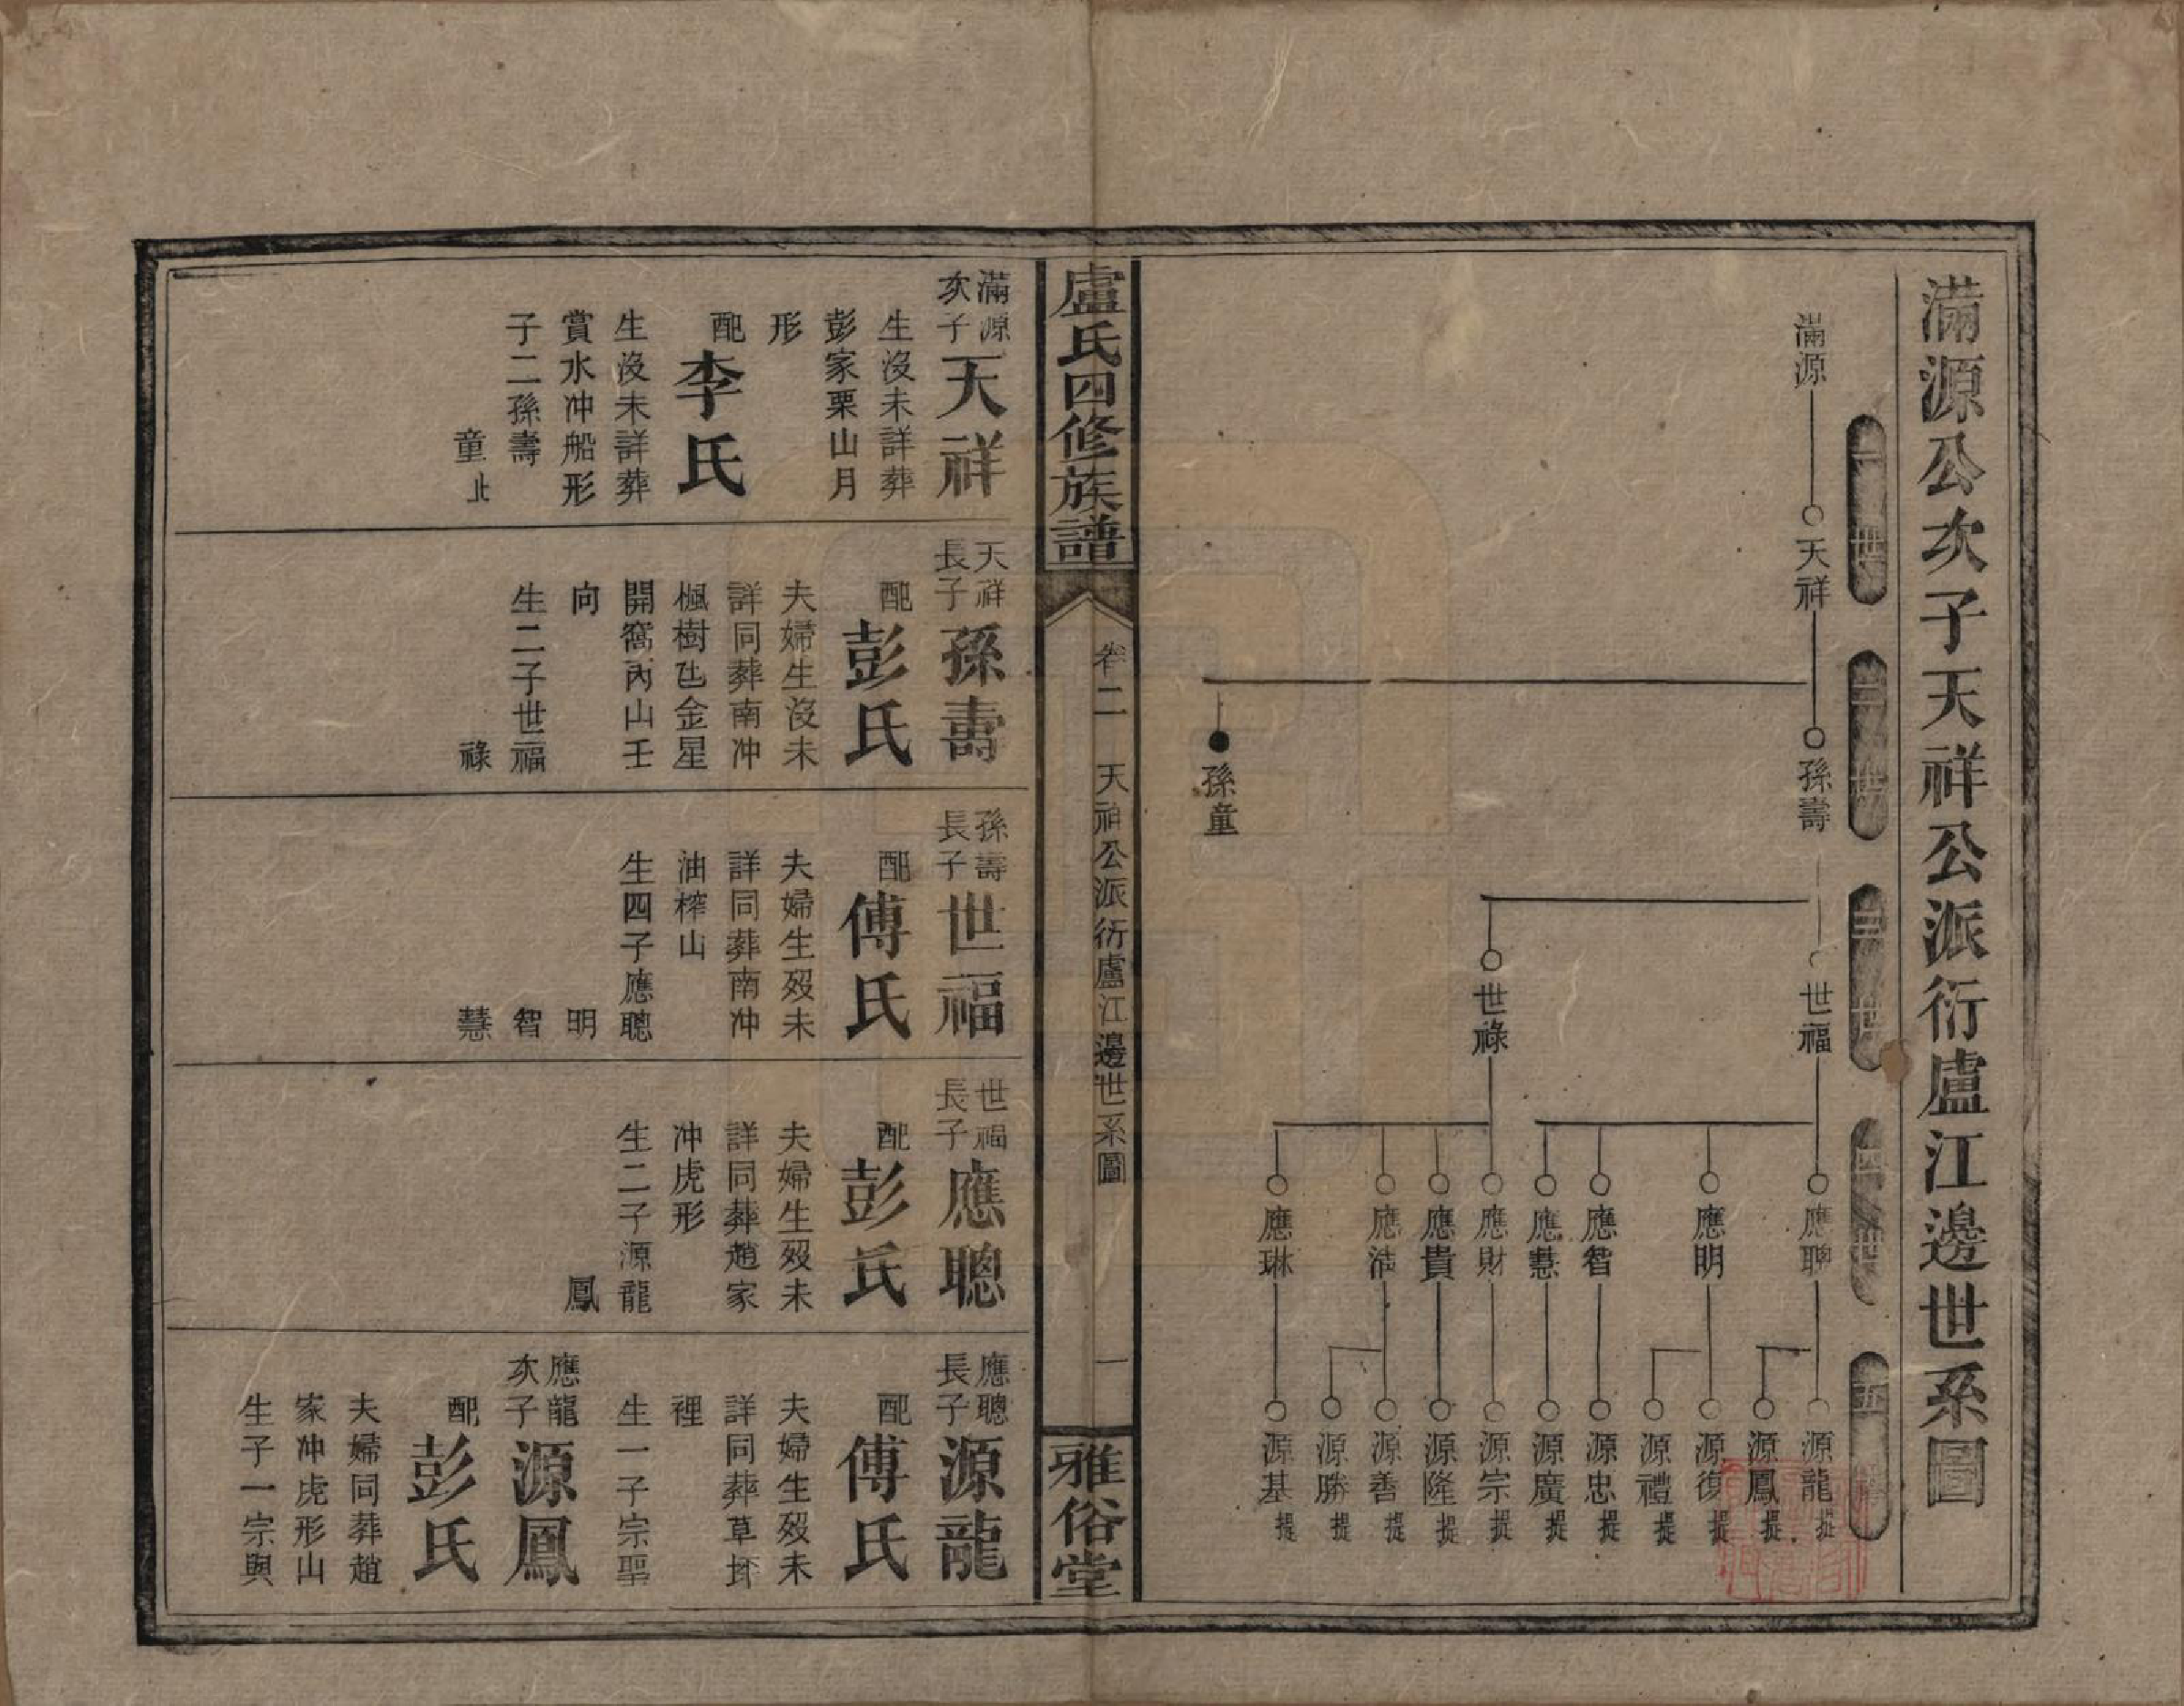 滿源公次子天祥公派衍盧江邊世系圖
一世
二世
三世
四世
五世
滿源
天祥
孫壽
孫童
世福
世祿
應聰
應明
應智
應慧
應財
應貴
應滿
應琳
源龍 提
源鳳 提
源復 提
源禮 提
源忠 提
源廣 提
源宗 提
源隆 提
源善 提
源勝 提
源基 提
盧氏四修族譜
卷二
天祥公派衍盧江邊世系圖
一
雅俗堂
滿源
次子
天祥
生沒未詳葬
彭家栗山月
形
配李氏
生沒未詳葬
賞水冲船形
子二孫壽
童止
天祥
長子
孫壽
配彭氏
夫婦生沒未
詳同葬南冲
楓樹𠙚金星
開窩丙山壬
向
生二子世福
祿
孫壽
長子
世福
配傅氏
夫婦生歿未
詳同葬南冲
油榨山
生四子應聰
明
智
慧
世福
長子
應聰
配彭氏
夫婦生歿未
詳同葬趙家
冲虎形
生二子源龍
鳳
應聰
長子
源龍
配傅氏
夫婦生歿未
詳同葬草坏
裡
生一子宗聖
應龍
次子
源鳳
配彭氏
夫婦同葬趙
家冲虎形山
生子一宗與